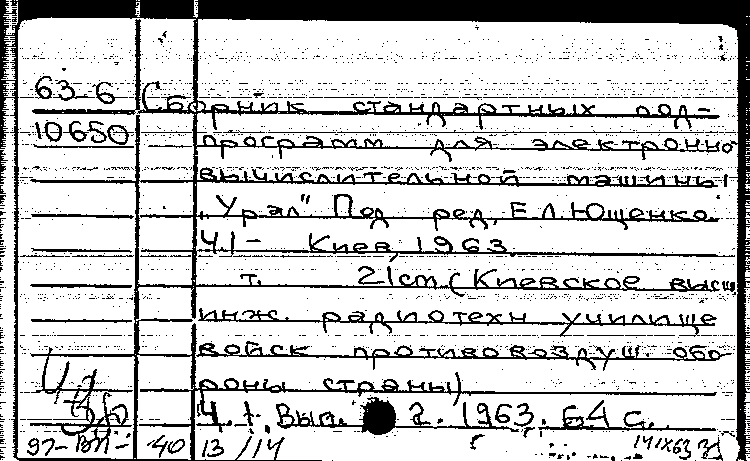 63-6 Сборник стандартных под-
10650 программ для электронно
вычислительной машины
„Урал" Под ред. Е.Л.Ющенко.
Ч.1- Киев, 1963.
т. 21cm (Киевское высш
инж. радиотехн училище
войск противовоздуш. обо
роны страны)
Ч.1. Вып. 2. 1963. 64 с.
40 13/14